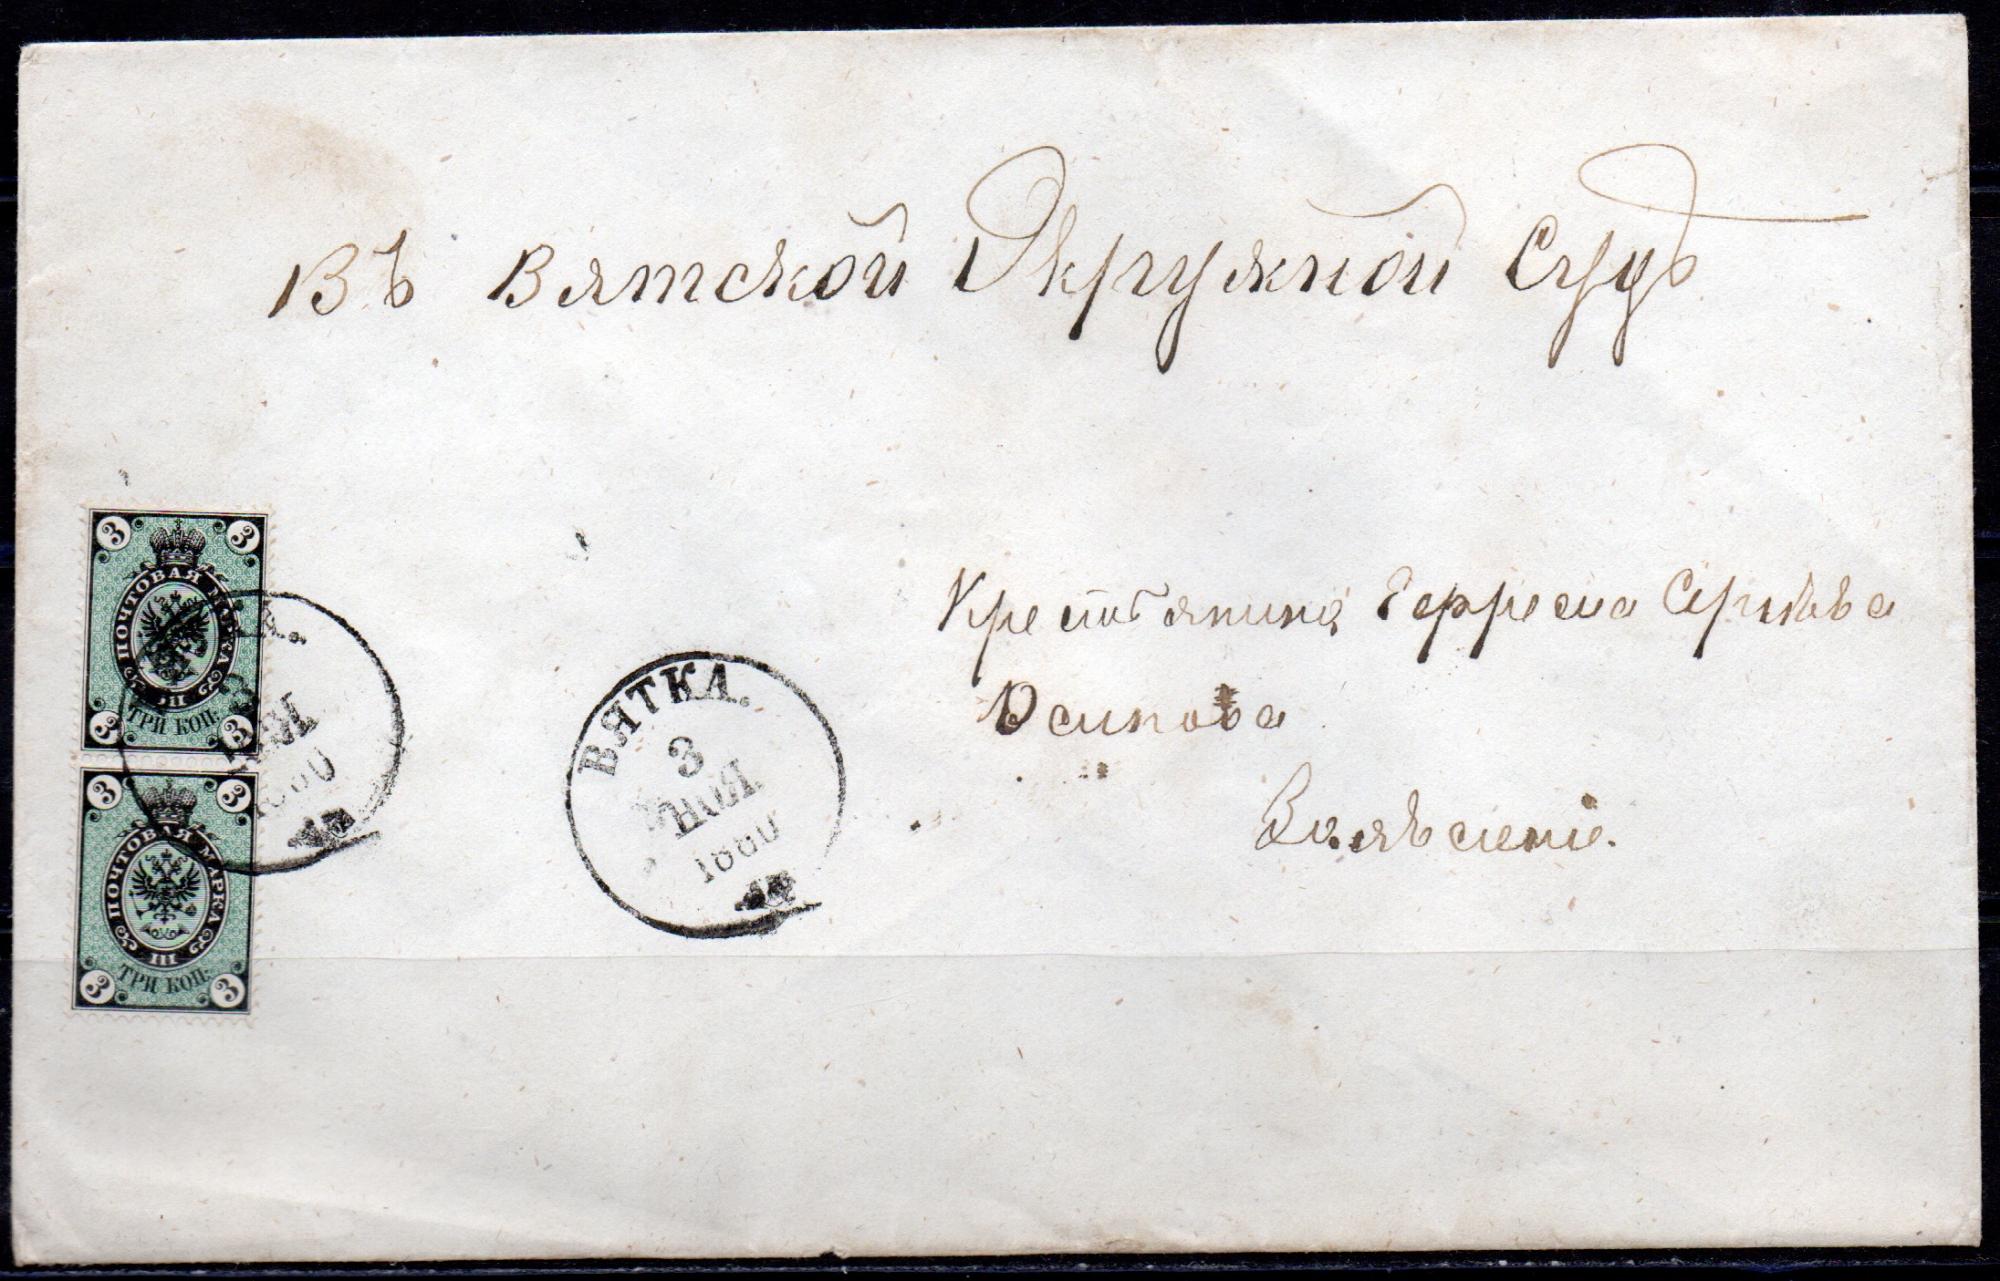 Въ Вятской Окружной Судъ
3 3
ПОЧТОВАЯ МАРКА
III
ТРИ КОП.
3 3
1880
3 3
ПОЧТОВАЯ МАРКА
III
ТРИ КОП.
3 3
ВЯТКА.
3
ІЮНЯ
1880
Крестьянина Сергѣева
Осипова